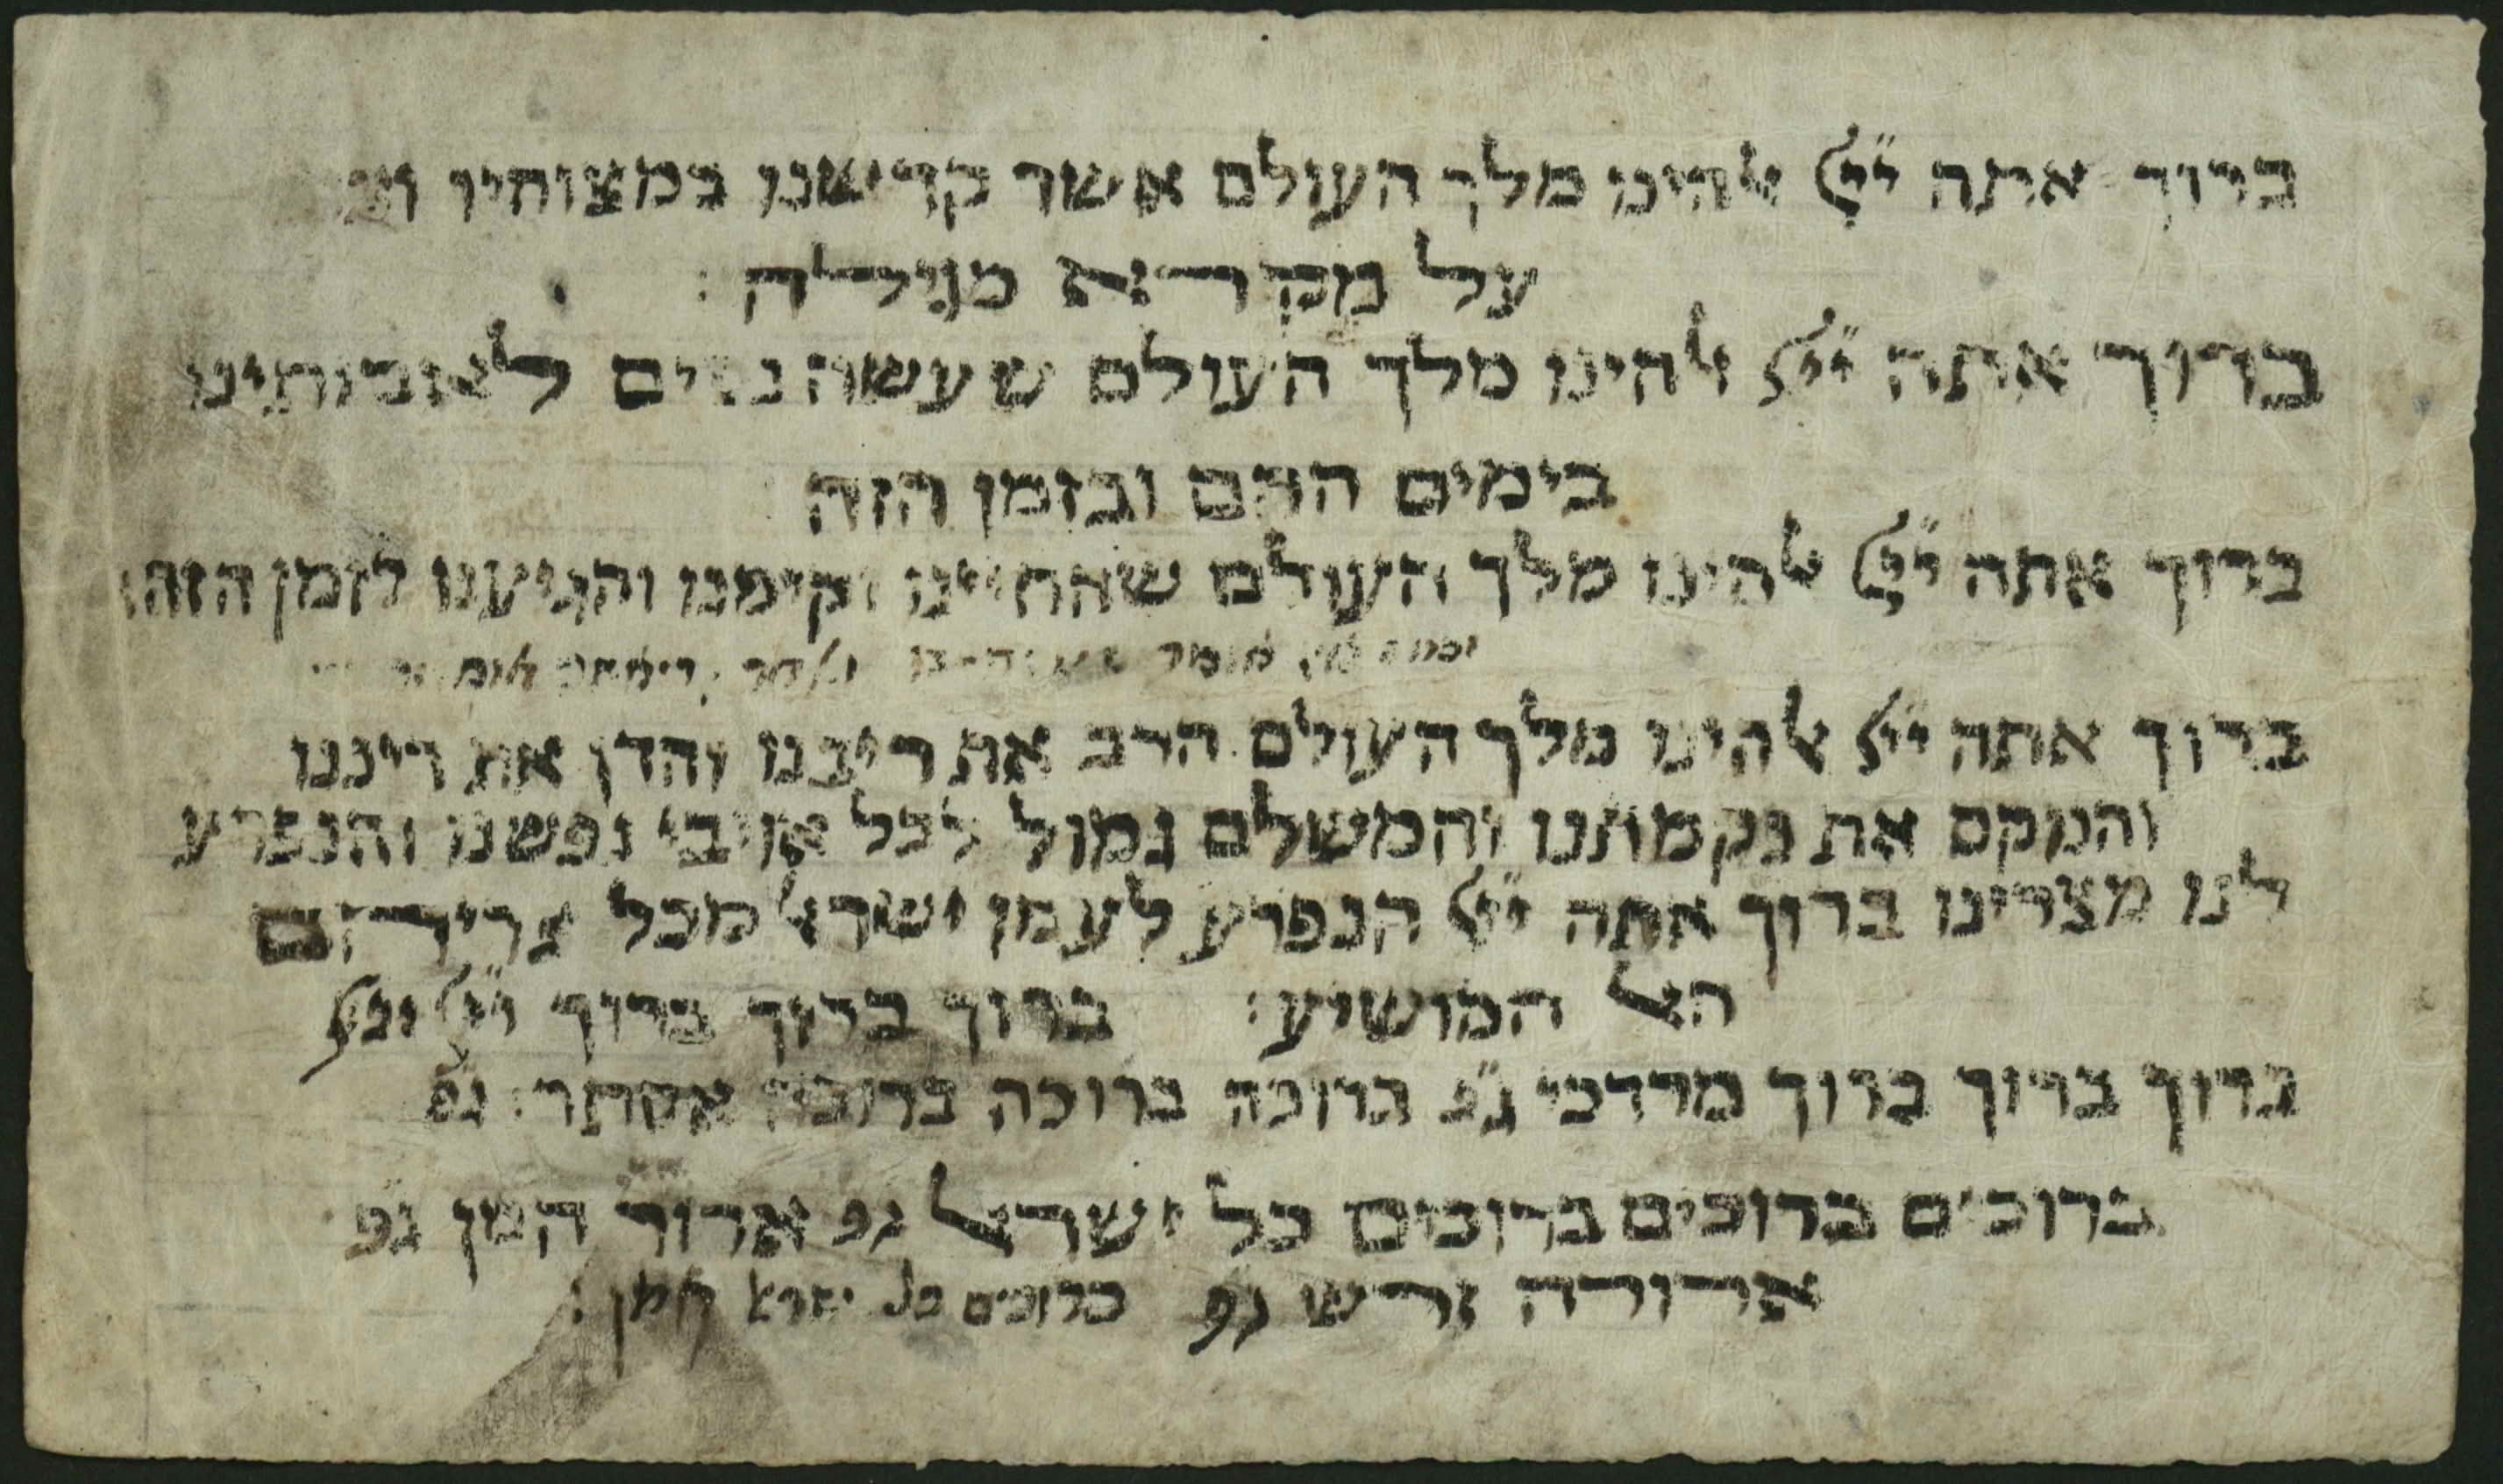 ברוך אתה ייי אלהינו מלך העולם אשר קדשנו במצותיו
על מקרא מגילה :
ברוך אתה ייי אלהינו מלך העולם שעשה נסים לאבותינו
בימים ההם ובזמן הזה
ברוך אתה ייי אלהינו מלך העולם שהחיינו וקימנו והגיענו לזמן הזה :
ברוך אתה ייי אלהינו מלך העולם הרב את ריבנו והדן את דיננו
והנוקם את נקמתנו והמשלם גמול לכל אויבי נפשנו והנפרע
לנו מצרינו ברוך אתה ייי הנפרע לעמו ישראל מכל צריהם
האל המושיע : ברוך ברוך ברוך ייי
ברוך ברוך ברוך מרדכי ג״פ ברוכה ברוכה ברוכה אסתר : ג״פ
ברוכים ברוכים ברוכים כל ישראל ג״פ ארור המן ג״פ
ארורה זרש ג״פ ברוכים כל ישראל אמן :